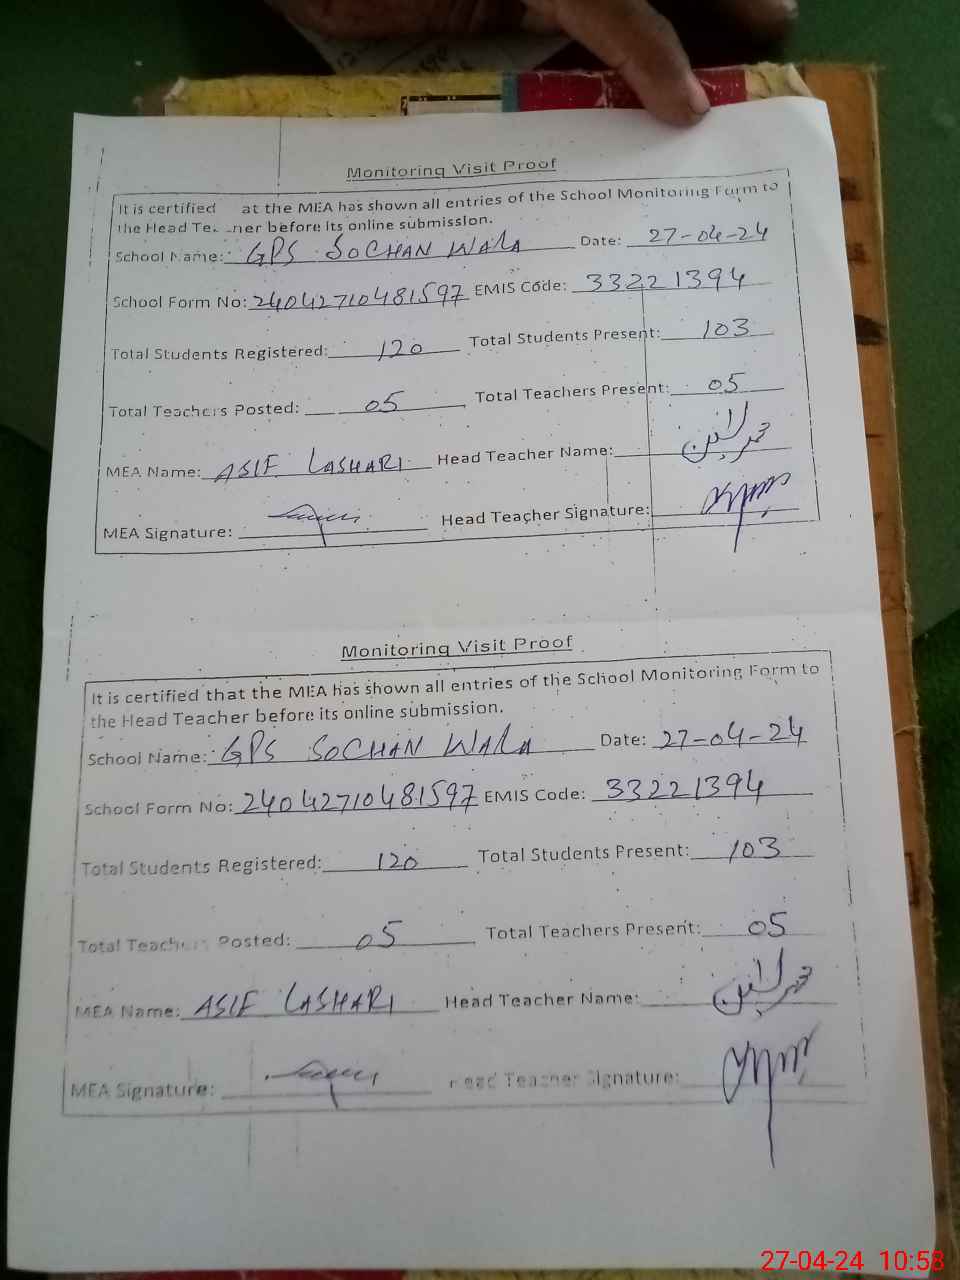 Monitoring Visit Proof
It is certified at the MEA has shown all entries of the School Monitoring Form to
the Head Te ner before its online submission.
School Name: GPS SOCHAN WALA Date: 27-04-24
School Form No: 24042710481597 EMIS Code: 33221394
Total Students Registered: 120 Total Students Present: 103
Total Teachers Posted: 05 Total Teachers Present: 05
MEA Name: ASIF LASHARI Head Teacher Name:
MEA Signature: Head Teacher Signature:
Monitoring Visit Proof
It is certified that the MEA has shown all entries of the School Monitoring Form to
the Head Teacher before its online submission.
School Name: GPS SOCHAN WALA Date: 27-04-24
School Form No: 24042710481597 EMIS Code: 33221394
Total Students Registered: 120 Total Students Present: 103
Total Teachers Posted: 05 Total Teachers Present: 05
MEA Name: ASIF LASHARI Head Teacher Name:
MEA Signature: Head Teacher Signature:
27-04-24 10:58